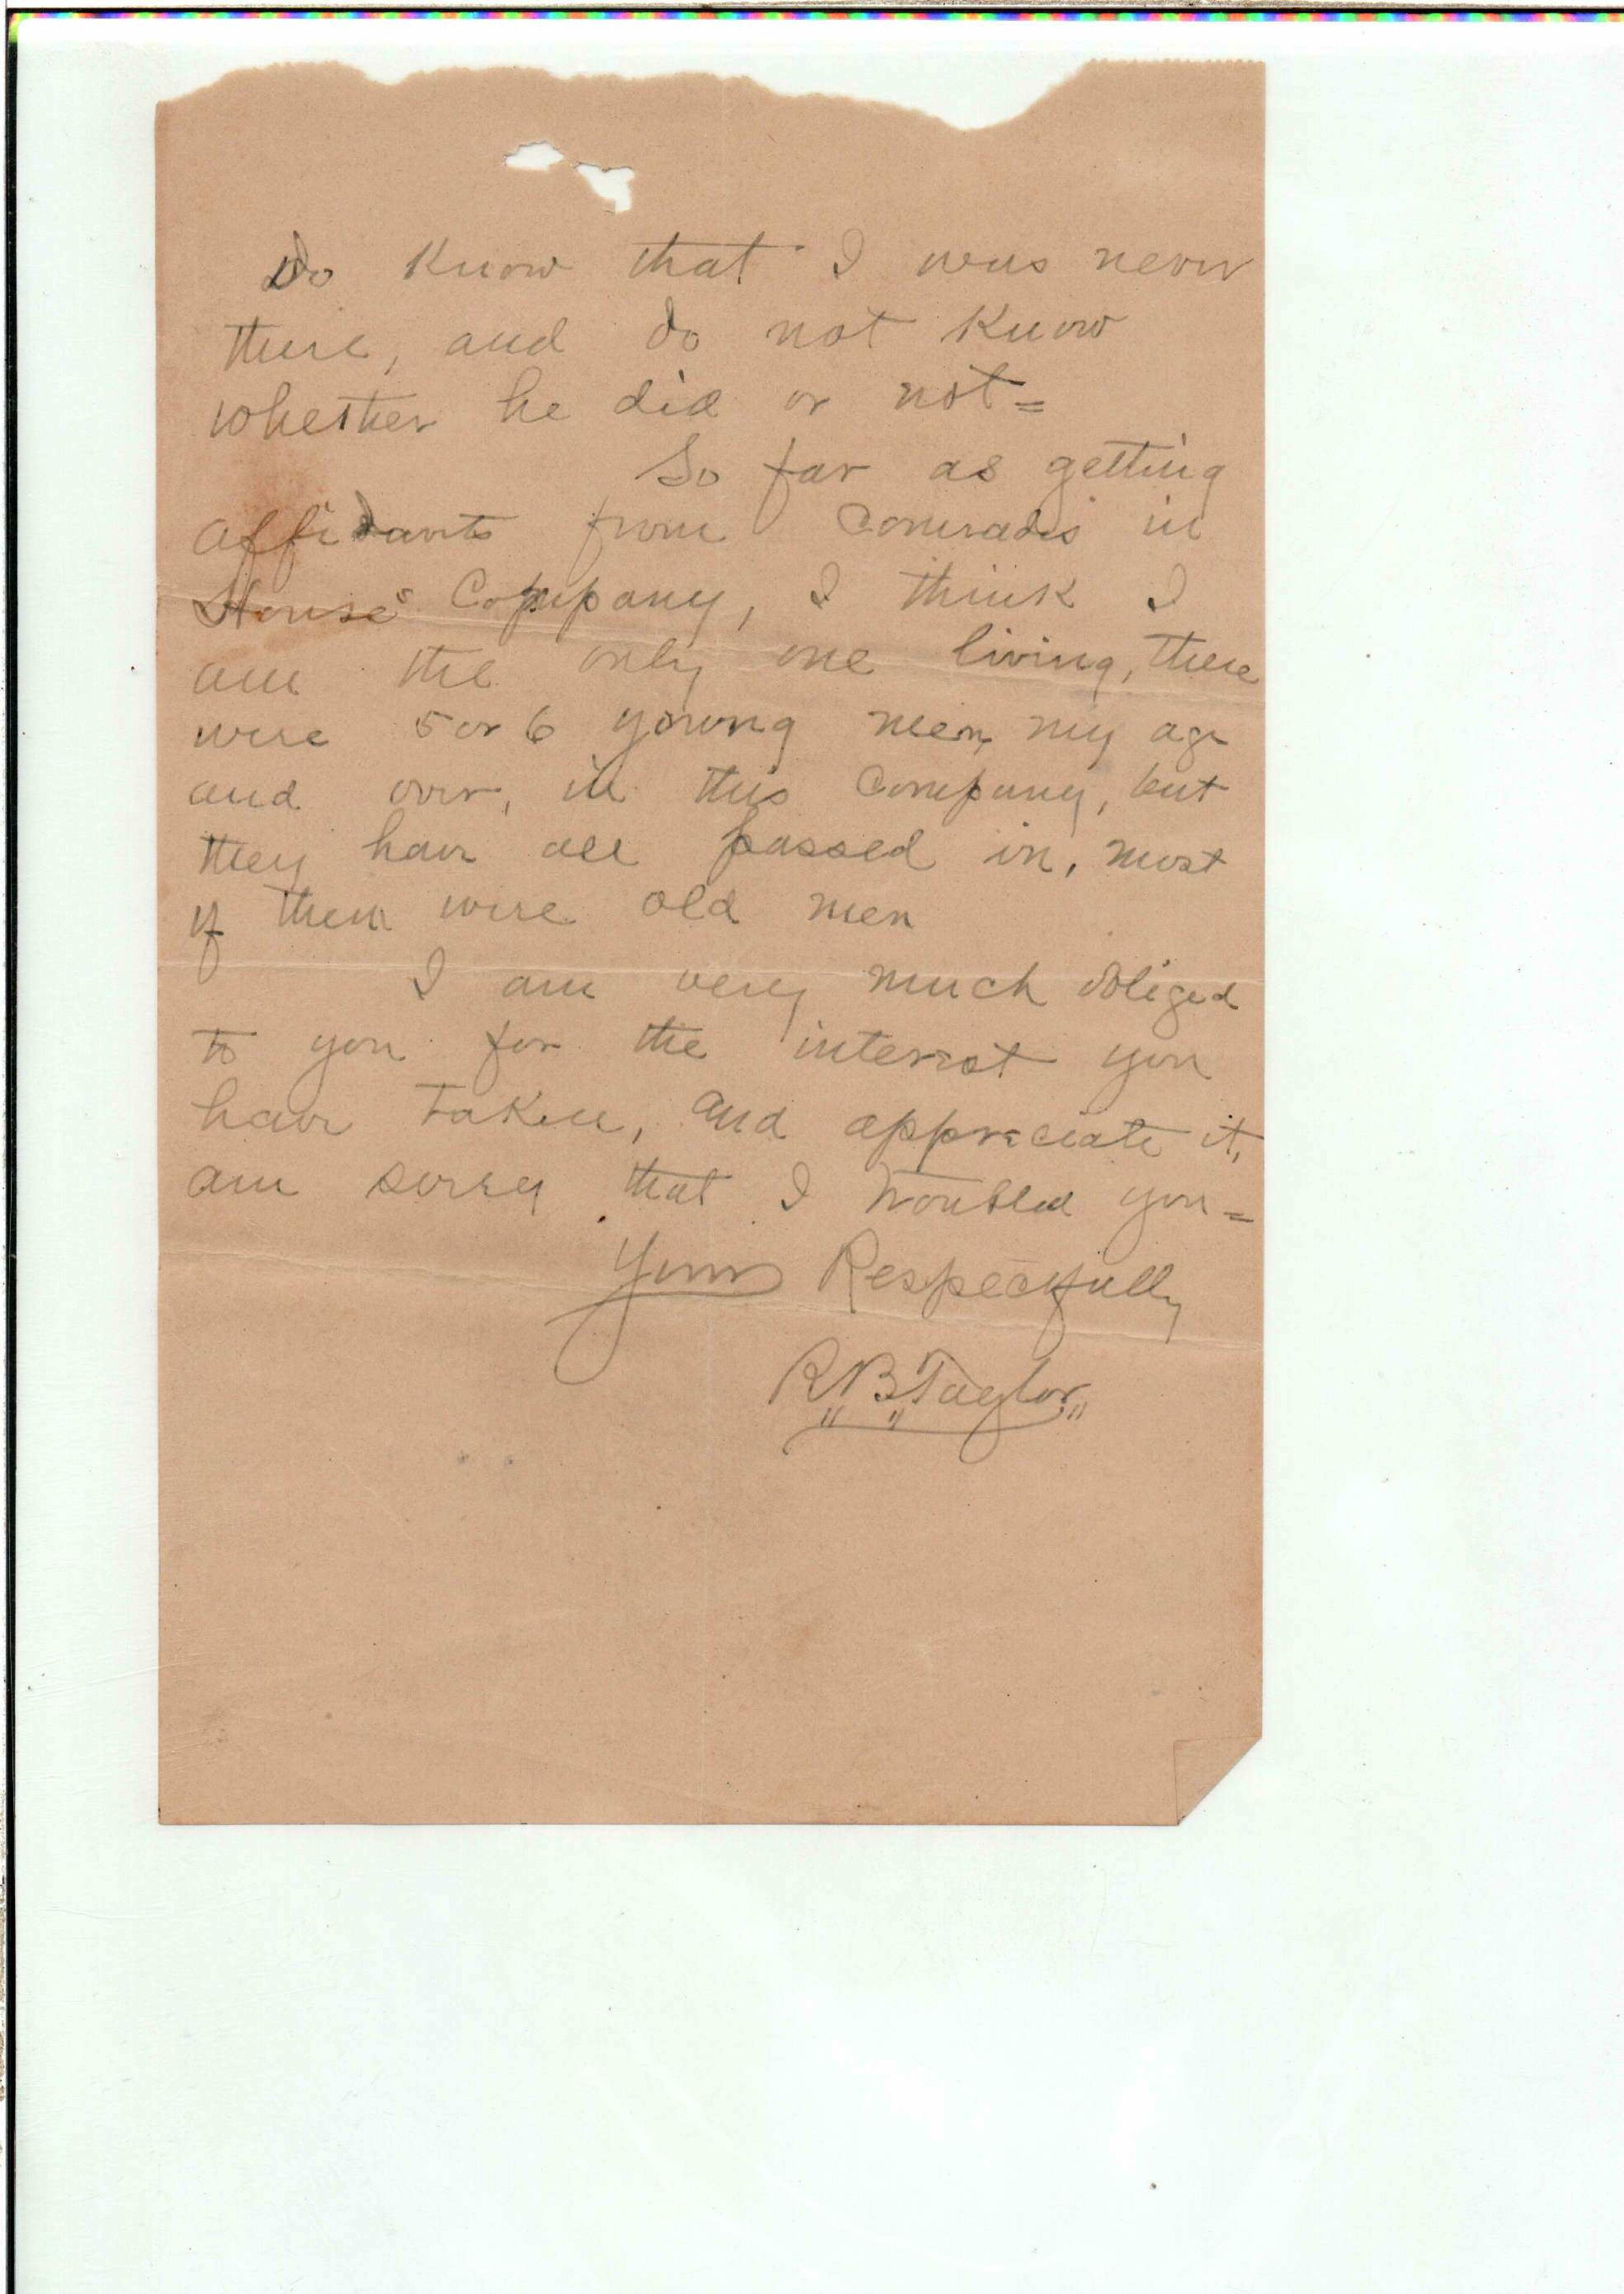 Do Know that I was never
there, and do not Know
whether he did or not=
So far as getting
affidavits from Comrades in
House's Company, I think I
am the only one living, there
were 5 or 6 young men, my age
and over, in this Company, but
they have all passed in, most
of them were old men
I am very much obliged
to you for the interest you
have taken, and appreciate it,
am sorry that I troubled you=
Yours Respectfully
R B Taylor